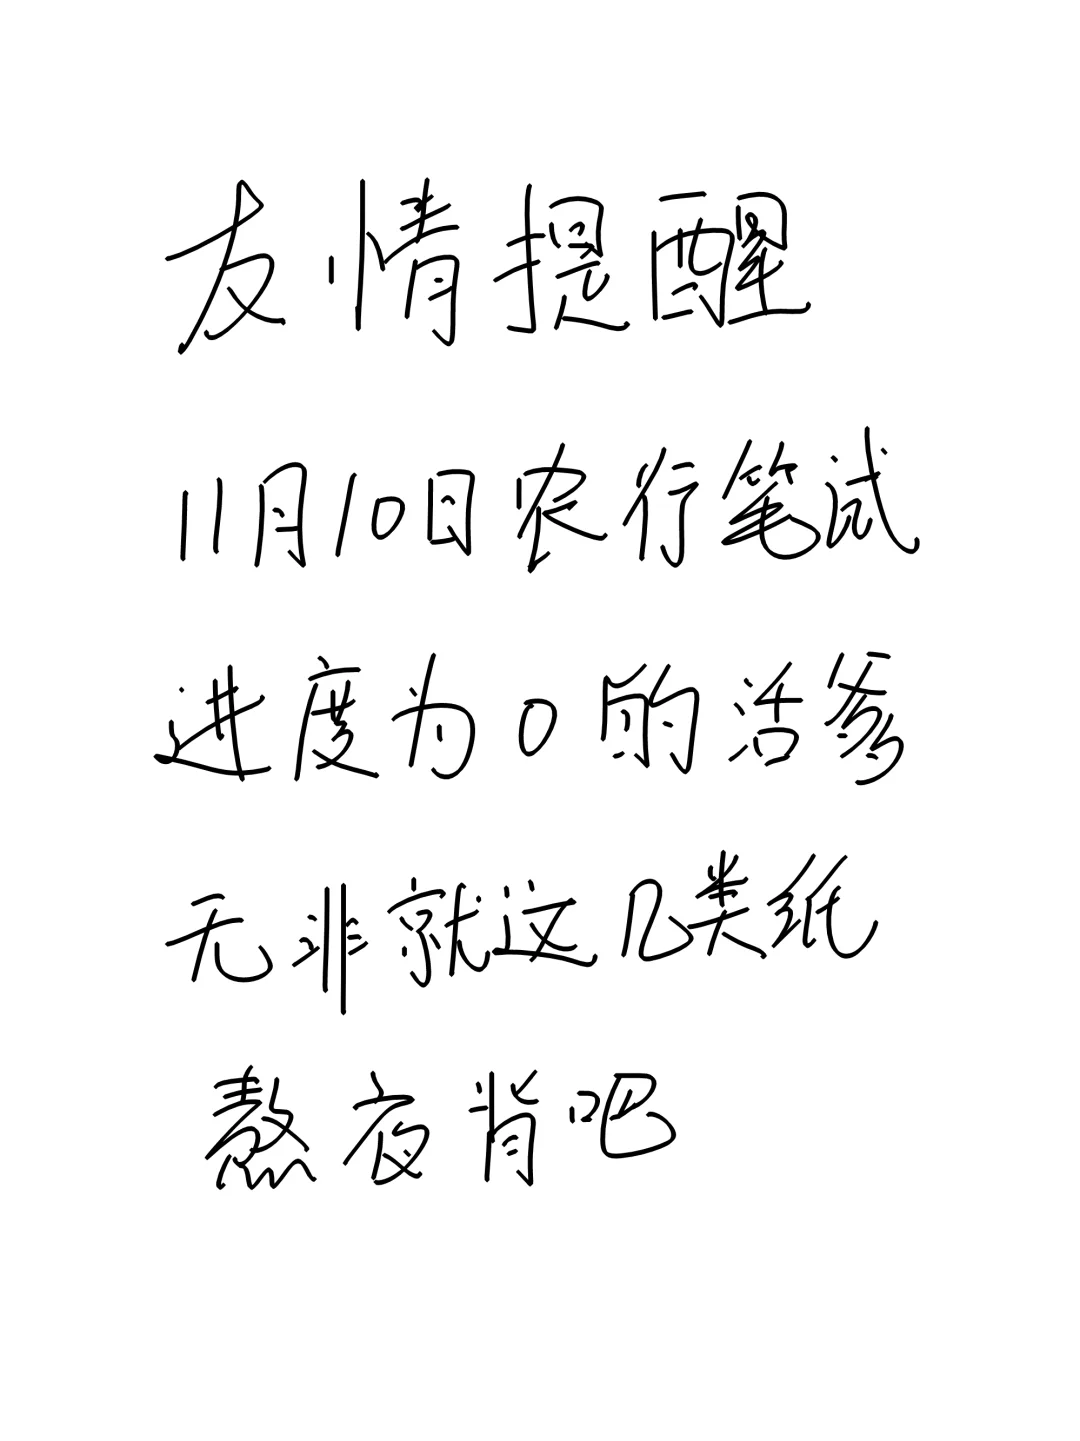 友情提醒
11月10日农行笔试
进度为0的活爹
无非就这几类纸
熬夜背吧